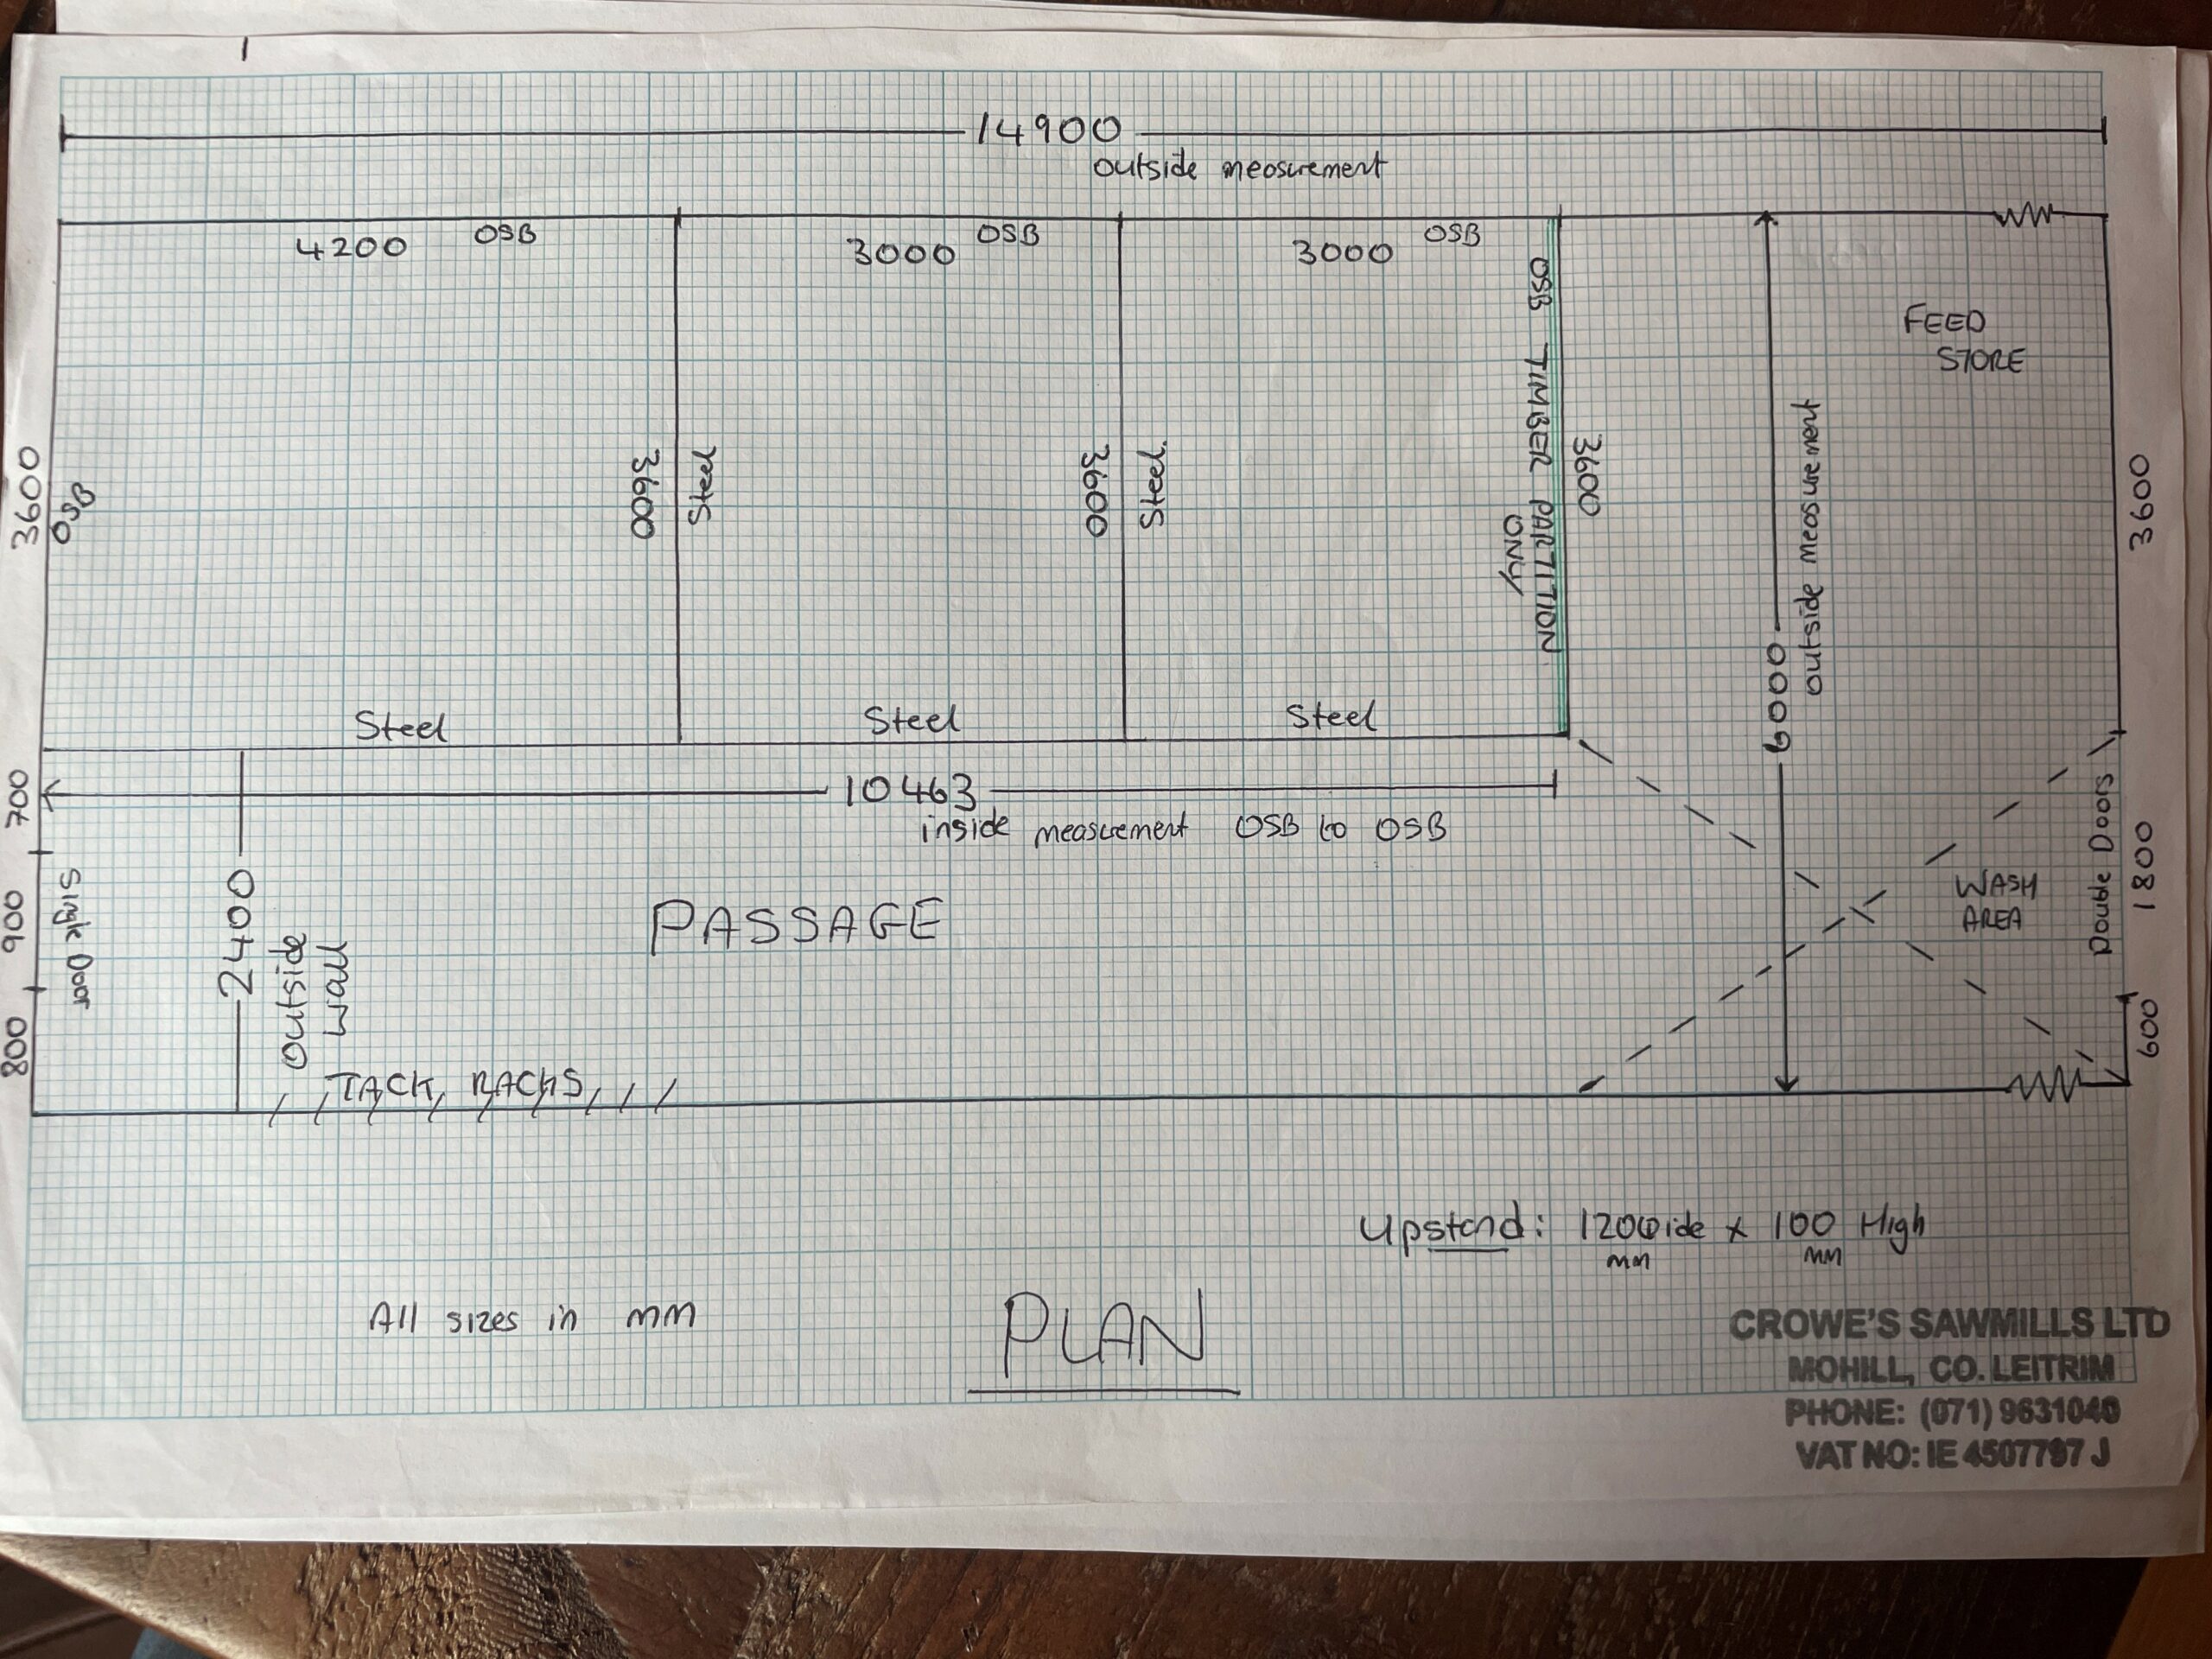 14900
outside measurement
4200 OSB
3000 OSB
3000 OSB
3600
OSB
3600
Steel
3600
Steel.
OSB TIMBER PARTITION
ONLY
3600
6000
outside measurement
FEED
STORE
3600
Steel
Steel
Steel
10463
inside measurement OSB to OSB
700
900
800
Single Door
2400
outside
wall
PASSAGE
TACK RACKS
WASH
AREA
Double Doors
1800
600
Upstand: 120wide x 100 High
mm mm
All sizes in mm
PLAN
CROWE'S SAWMILLS LTD
MOHILL, CO. LEITRIM
PHONE: (071) 9631040
VAT NO: IE 4507797 J